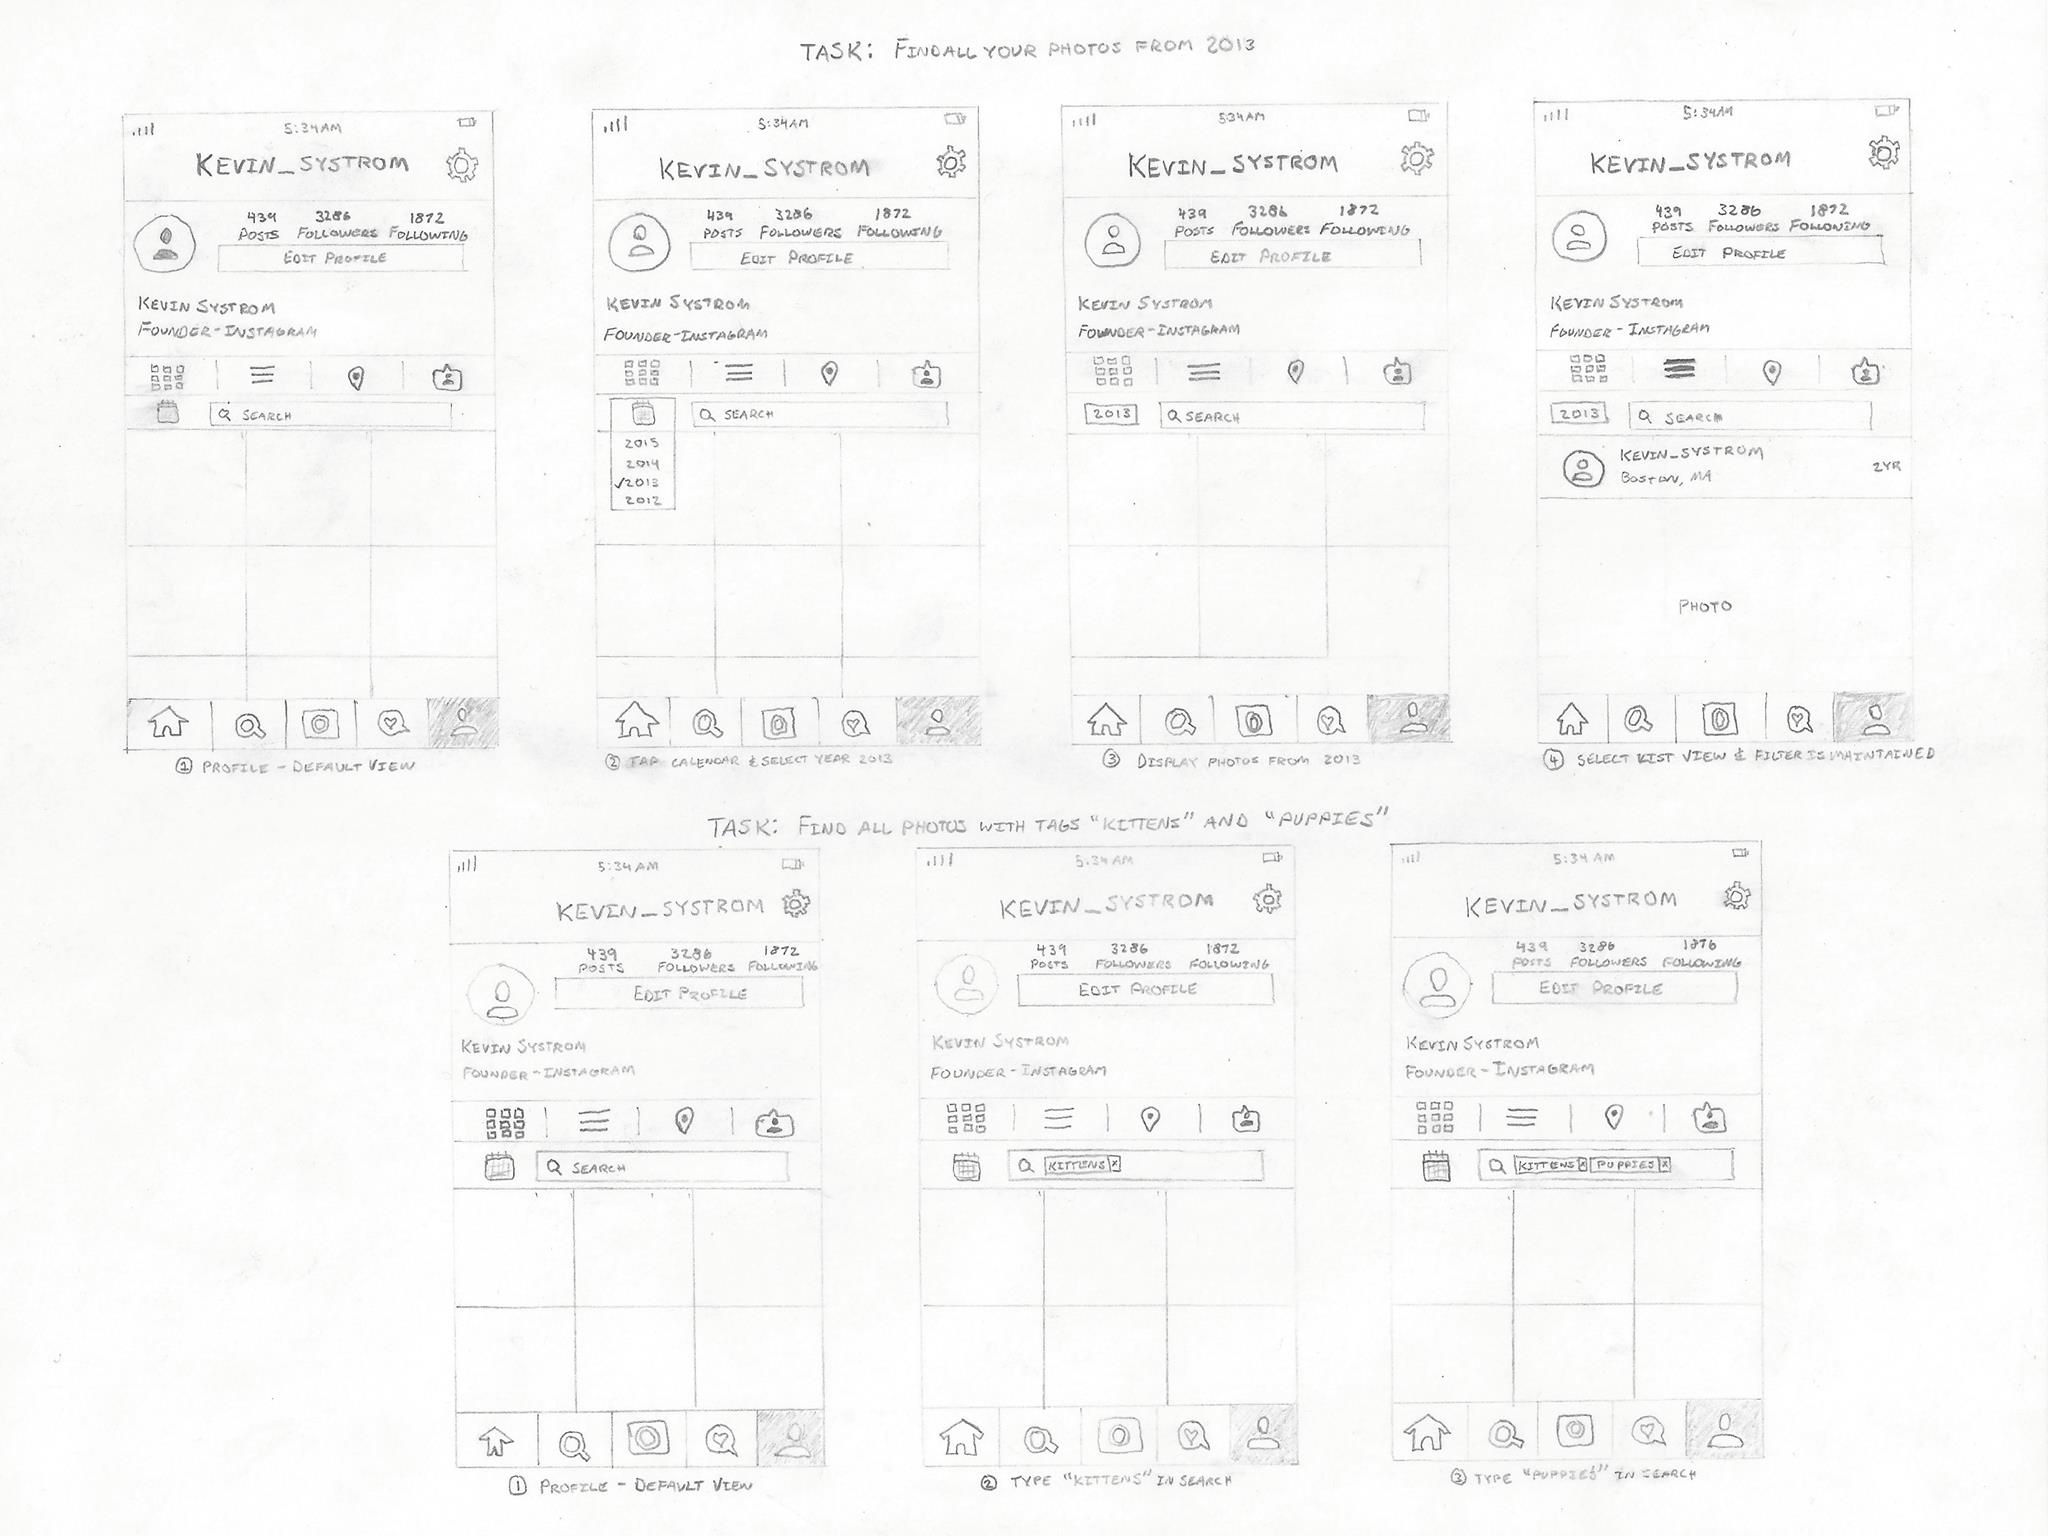 TASK: FIND ALL YOUR PHOTOS FROM 2013
5:34AM
KEVIN_SYSTROM
439 3286 1872
POSTS FOLLOWERS FOLLOWING
EDIT PROFILE
KEVIN SYSTROM
FOUNDER-INSTAGRAM
SEARCH
① PROFILE - DEFAULT VIEW
5:34AM
KEVIN_SYSTROM
439 3286 1872
POSTS FOLLOWERS FOLLOWING
EDIT PROFILE
KEVIN SYSTROM
FOUNDER-INSTAGRAM
SEARCH
2015
2014
✓2013
2012
② TAP CALENDAR & SELECT YEAR 2013
534AM
KEVIN_SYSTROM
439 3286 1872
POSTS FOLLOWERS FOLLOWING
EDIT PROFILE
KEVIN SYSTROM
FOUNDER-INSTAGRAM
2013 SEARCH
③ DISPLAY PHOTOS FROM 2013
5:34AM
KEVIN_SYSTROM
439 3286 1872
POSTS FOLLOWERS FOLLOWING
EDIT PROFILE
KEVIN SYSTROM
FOUNDER-INSTAGRAM
2013 SEARCH
KEVIN_SYSTROM
BOSTON, MA
2YR
PHOTO
④ SELECT LIST VIEW & FILTER IS MAINTAINED
TASK: FIND ALL PHOTOS WITH TAGS "KITTENS" AND "PUPPIES"
5:34AM
KEVIN_SYSTROM
439 3286 1872
POSTS FOLLOWERS FOLLOWING
EDIT PROFILE
KEVIN SYSTROM
FOUNDER-INSTAGRAM
SEARCH
① PROFILE - DEFAULT VIEW
5:34AM
KEVIN_SYSTROM
439 3286 1872
POSTS FOLLOWERS FOLLOWING
EDIT PROFILE
KEVIN SYSTROM
FOUNDER-INSTAGRAM
KITTENS X
② TYPE "KITTENS" IN SEARCH
5:34AM
KEVIN_SYSTROM
439 3286 1876
POSTS FOLLOWERS FOLLOWING
EDIT PROFILE
KEVIN SYSTROM
FOUNDER-INSTAGRAM
KITTENS X PUPPIES X
③ TYPE "PUPPIES" IN SEARCH